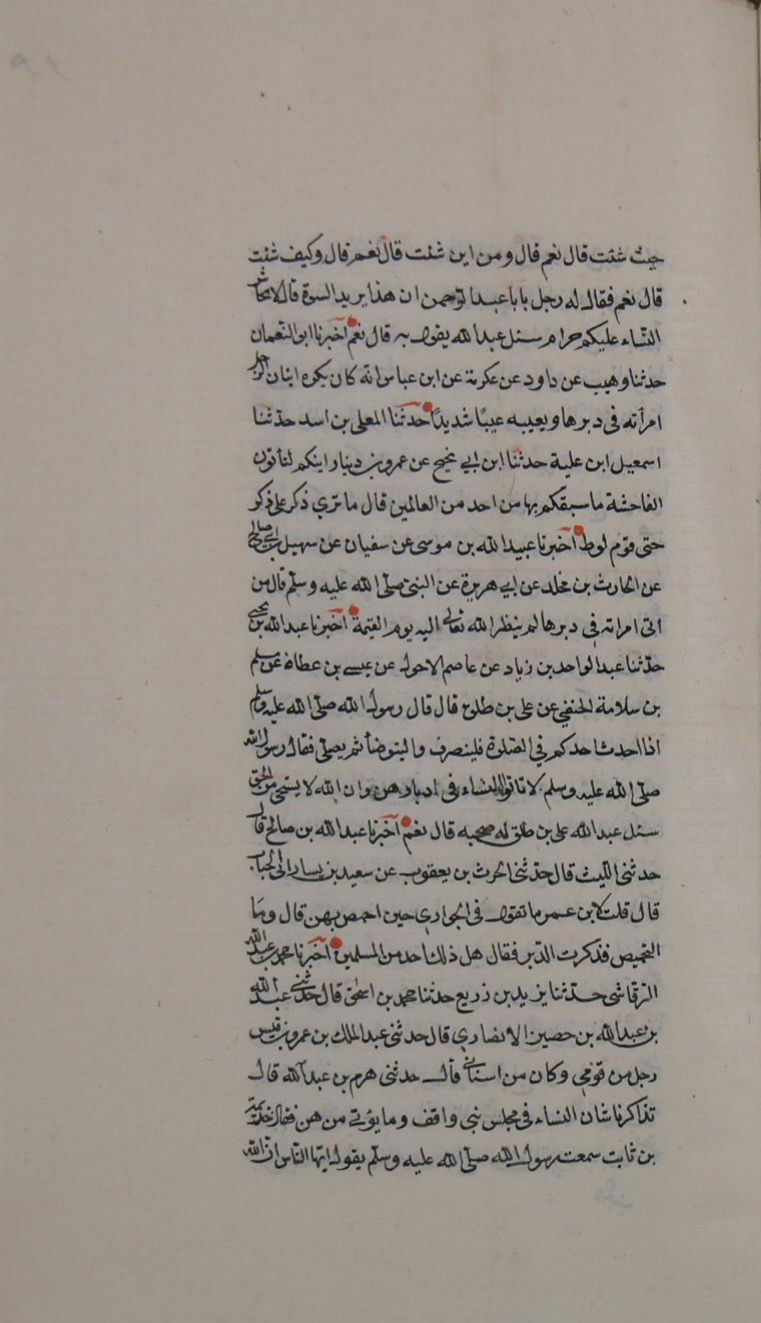 حيث شئت قال نعم قال ومن اين شئت قال نعم قال وكيف شئت
قال نعم فقال له رجل يا با عبد الرحمن ان هذا يريد السوة قال لا محاش
النساء عليكم حرام سئل عبد الله يقول به قال نعم اخبرنا ابو النعمان
حدثنا وهيب عن داود عن عكرمة عن ابن عباس انه كان يكره اتيان الرجل
امرأته في دبرها ويعيبه عيبًا شديدًا حدثنا المعلى بن اسد حدثنا
اسمعيل ابن علية حدثنا ابن ابي نجيح عن عمرو بن دينار اينكم لتاتون
الفاحشة ما سبقكم بها من احد من العالمين قال ما تري ذكر على ذكر
حتى قوم لوط اخبرنا عبيد الله بن موسى عن سفيان عن سهيل بن ابي صالح
عن الحارث بن مخلد عن ابي هريرة عن النبي صلى الله عليه وسلم قال من
اتى امراته في دبرها لم ينظر الله تعالى اليه يوم القيمة اخبرنا عبد الله بن يحيى
حدثنا عبد الواحد بن زياد عن عاصم الاحول عن عيسى بن عطان عن مسلم
بن سلامة الحنفي عن على بن طلق قال قال رسول الله صلى الله عليه وسلم
اذا احدث احدكم في الصلوة فلينصرف واليتوضأ ثم يصلي فقال رسول الله
صلى الله عليه وسلم لا تاتوا النساء في ادبارهن وان الله لا يستحي من الحق
سئل عبد الله على بن طلق له صحبه قال نعم اخبرنا عبد الله بن صالح قال
حدثنى الليث قال حدثنى الحرث بن يعقوب عن سعيد بن يسار ابى الحباب
قال قلت لابن عمر ما تقول في الجوارى حين احمص بهن قال وما
التحميص فذكرت الدبر فقال هل ذلك احد من المسلمين اخبرنا محمد بن عبد الله
الرقاشى حدثنا يزيد بن زريع حدثنا محمد بن اسحق قال حدثني عبد الله
بن عبد الله بن حصين الانصارى قال حدثنى عبد الملك بن عمرو بن قيس
رجل من قومي وكان من اسنانى قال حدثنى هرم بن عبد الله قال
تذاكرنا شان النساء في مجلس بني واقف وما يؤتى من هن فقال خزيمة
بن ثابت سمعت رسول الله صلى الله عليه وسلم يقول ايها الناس ان الله